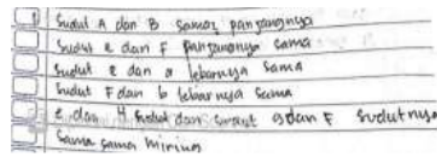 1 Sudut A dan B samaz panjangnya
Sudut e dan F panjangnya sama
Sudut e dan a lebarnya sama
Sudut F dan b lebarnya sama
e dan H sudut dan g dan F sudutnya
sama sama miring